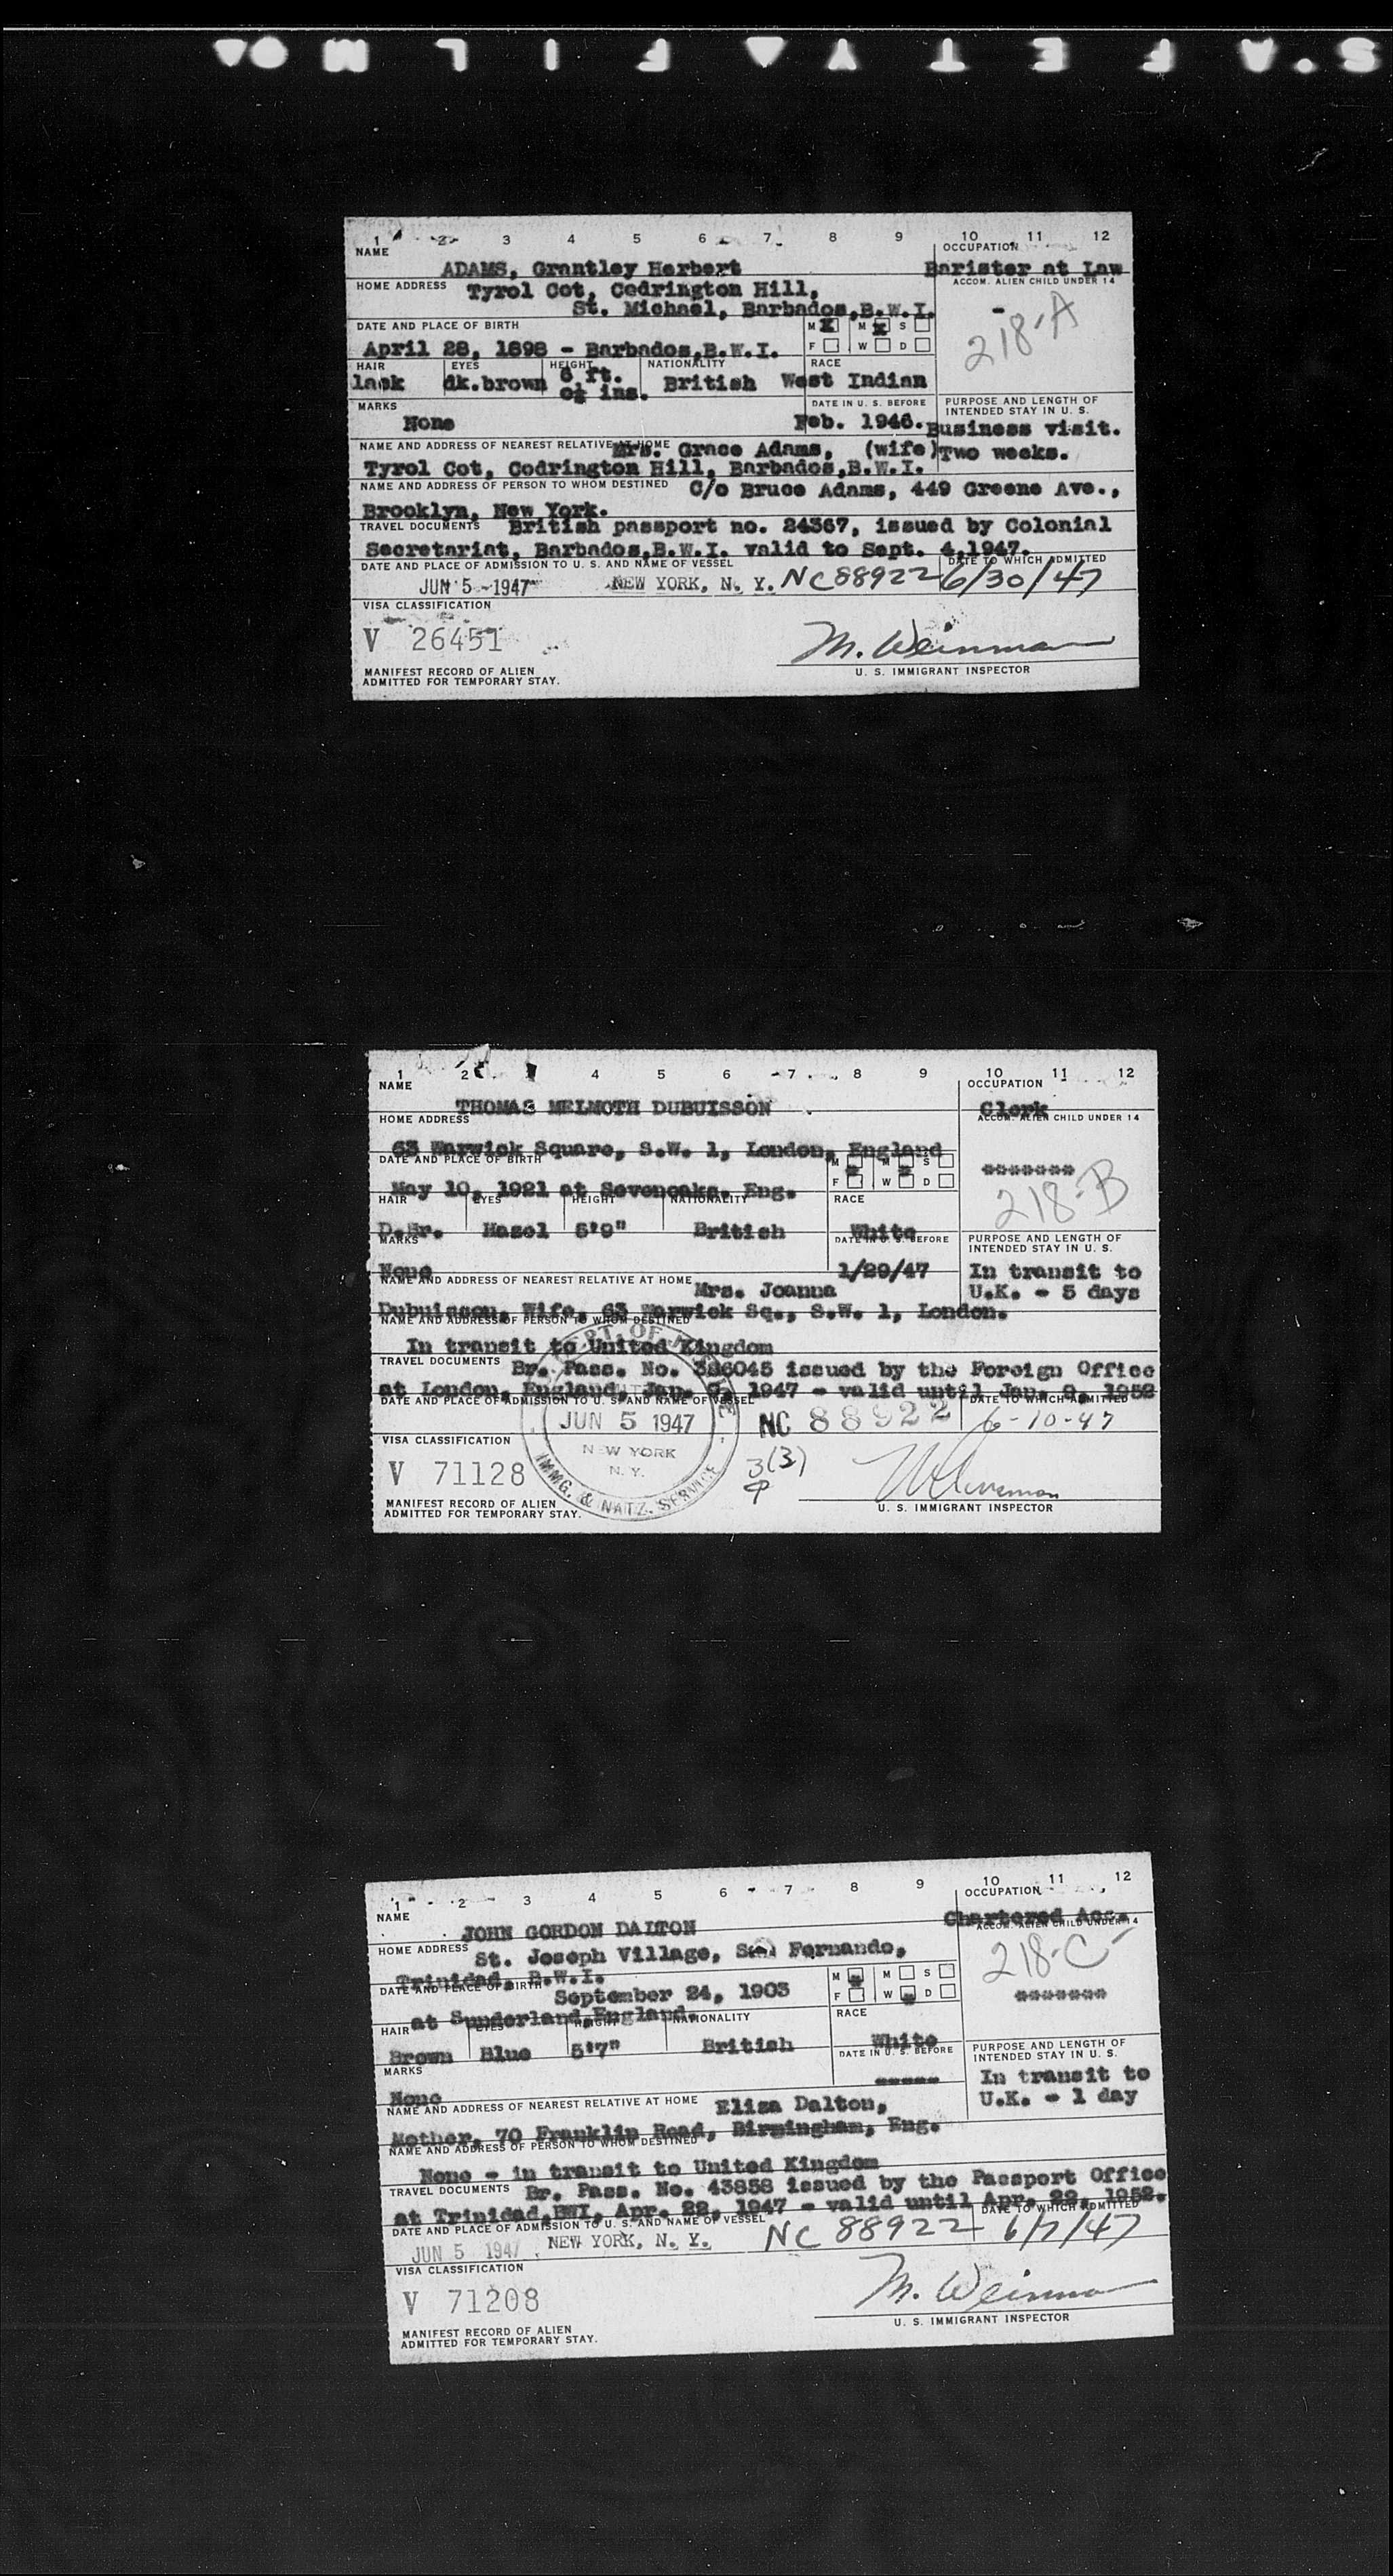 S.A.F E T Y ▲ F I L M
1 2 3 4 5 6 7 8 9 10 11 12
NAME OCCUPATION
ADAMS, Grantley Herbert Barister at Law
HOME ADDRESS Tyrol Cot, Codrington Hill, ACCOM. ALIEN CHILD UNDER 14
St. Michael, Barbados,B.W.I. -
218-A
DATE AND PLACE OF BIRTH M X M X S
April 28, 1898 - Barbados,B.W.I. F W D
HAIR EYES HEIGHT NATIONALITY RACE
lack dk.brown 6 ft. 0½ ins. British West Indian
MARKS DATE IN U. S. BEFORE PURPOSE AND LENGTH OF INTENDED STAY IN U. S.
None Feb. 1946. Business visit.
NAME AND ADDRESS OF NEAREST RELATIVE AT HOME Mrs. Grace Adams, (wife) Two weeks.
Tyrol Cot, Codrington Hill, Barbados,B.W.I.
NAME AND ADDRESS OF PERSON TO WHOM DESTINED C/o Bruce Adams, 449 Greene Ave.,
Brooklyn, New York.
TRAVEL DOCUMENTS British passport no. 24567, issued by Colonial
Secretariat, Barbados,B.W.I. valid to Sept. 4,1947.
DATE AND PLACE OF ADMISSION TO U. S. AND NAME OF VESSEL DATE TO WHICH ADMITTED
JUN 5 - 1947 NEW YORK, N. Y. NC 88922 6/30/47
VISA CLASSIFICATION
V 26451 M. Weinman
MANIFEST RECORD OF ALIEN U. S. IMMIGRANT INSPECTOR
ADMITTED FOR TEMPORARY STAY.
1 2 3 4 5 6 7 8 9 10 11 12
NAME OCCUPATION
THOMAS MELMOTH DUBUISSON Clerk
HOME ADDRESS ACCOM. ALIEN CHILD UNDER 14
63 Warwick Square, S.W. 1, London, England
DATE AND PLACE OF BIRTH M M S *******
May 10, 1921 at Sevenoaks, Eng. F W D 218-B
HAIR EYES HEIGHT NATIONALITY RACE
D.Br. Hazel 5'9" British White
MARKS DATE IN U. S. BEFORE PURPOSE AND LENGTH OF INTENDED STAY IN U. S.
None 1/29/47 In transit to
NAME AND ADDRESS OF NEAREST RELATIVE AT HOME Mrs. Joanna U.K. - 5 days
Dubuisson, Wife, 63 Warwick Sq., S.W. 1, London.
NAME AND ADDRESS OF PERSON TO WHOM DESTINED
In transit to United Kingdom
TRAVEL DOCUMENTS Br. Pass. No. 386045 issued by the Foreign Office
at London, England, Jan. 9, 1947 - valid until Jan. 9, 1952
DATE AND PLACE OF ADMISSION TO U. S. AND NAME OF VESSEL DATE TO WHICH ADMITTED
JUN 5 1947 NC 88922 6-10-47
VISA CLASSIFICATION NEW YORK N. Y.
V 71128 3(3)
IMMG. & NATZ. SERVICE
MANIFEST RECORD OF ALIEN U. S. IMMIGRANT INSPECTOR
ADMITTED FOR TEMPORARY STAY.
1 2 3 4 5 6 7 8 9 10 11 12
NAME OCCUPATION
JOHN GORDON DALTON Chartered Acc.
HOME ADDRESS St. Joseph Village, San Fernando, ACCOM. ALIEN CHILD UNDER 14
Trinidad, B.W.I. 218-C
DATE AND PLACE OF BIRTH September 24, 1903 M M S
at Sunderland,England. F W D *******
HAIR EYES HEIGHT NATIONALITY RACE
Brown Blue 5'7" British White
MARKS DATE IN U. S. BEFORE PURPOSE AND LENGTH OF INTENDED STAY IN U. S.
None ----- In transit to
NAME AND ADDRESS OF NEAREST RELATIVE AT HOME Eliza Dalton, U.K. - 1 day
Mother, 70 Franklin Road, Birmingham, Eng.
NAME AND ADDRESS OF PERSON TO WHOM DESTINED
None - in transit to United Kingdom
TRAVEL DOCUMENTS Br. Pass. No. 43858 issued by the Passport Office
at Trinidad,BWI, Apr. 22, 1947 - valid until Apr. 22, 1952.
DATE AND PLACE OF ADMISSION TO U. S. AND NAME OF VESSEL DATE TO WHICH ADMITTED
JUN 5 1947 NEW YORK, N. Y. NC 88922 6/7/47
VISA CLASSIFICATION
V 71208 M. Weinman
MANIFEST RECORD OF ALIEN U. S. IMMIGRANT INSPECTOR
ADMITTED FOR TEMPORARY STAY.